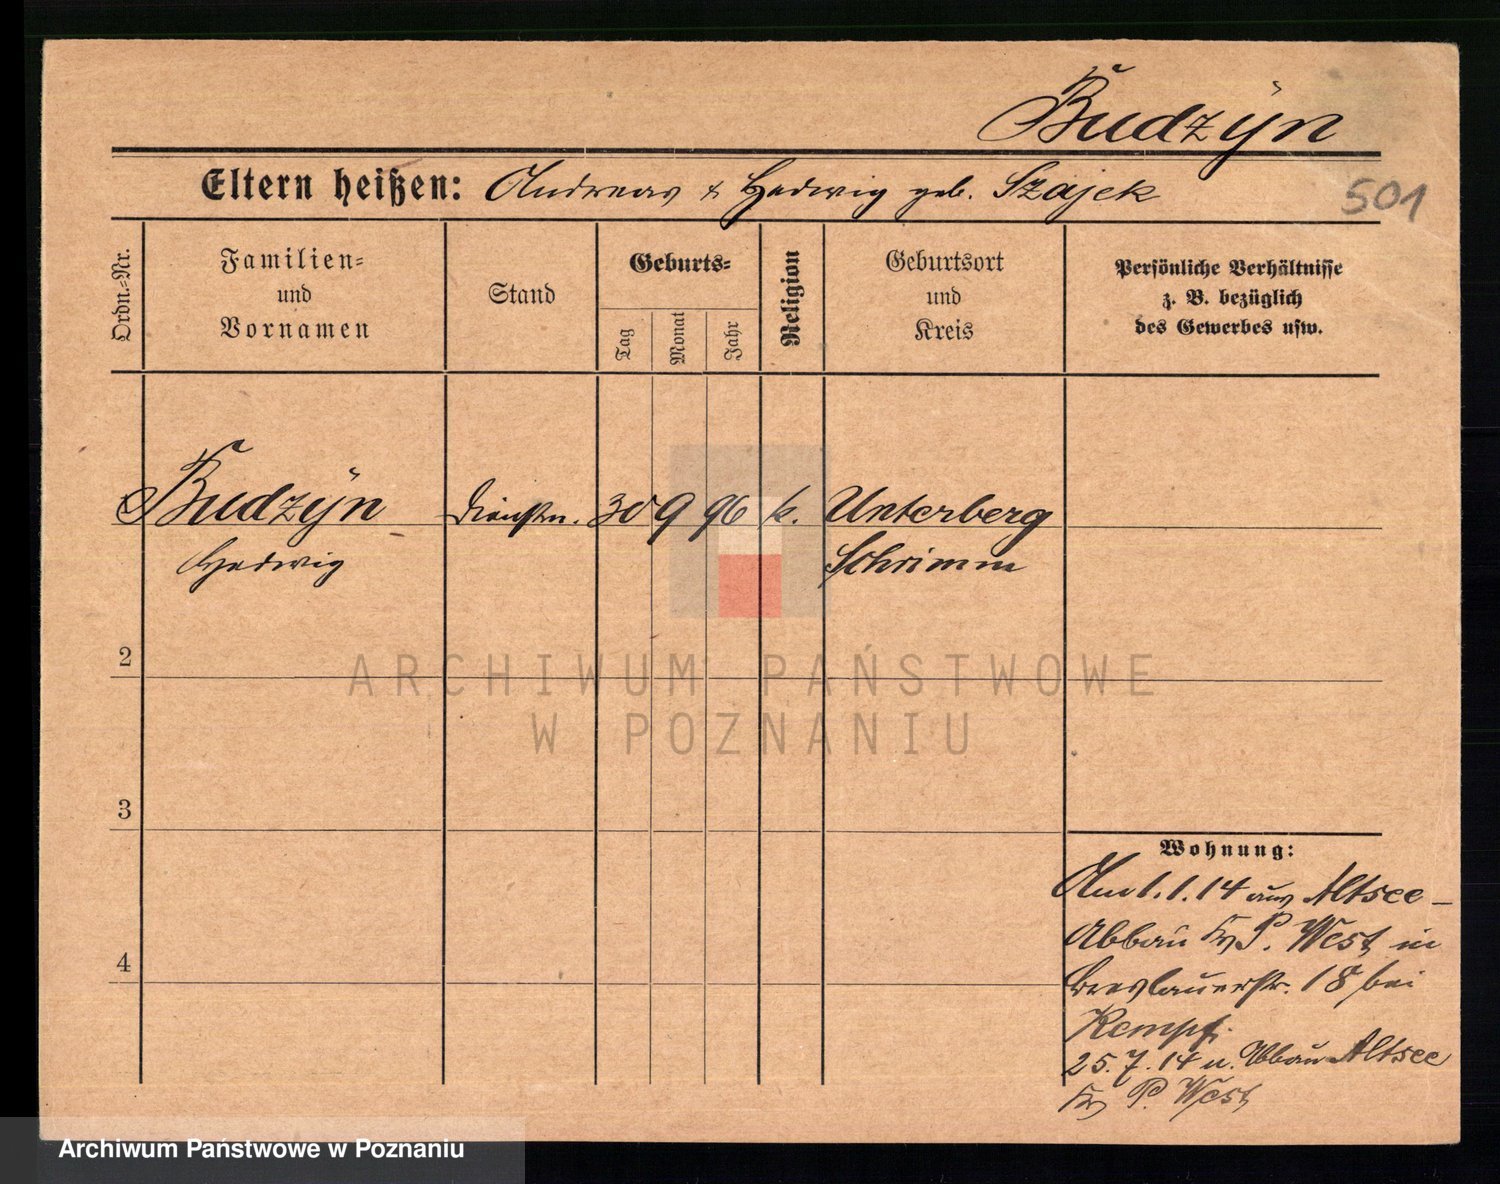 Budzÿn
Eltern heißen: Andreas & Hedwig geb. Szajek
501
Ordn.-Nr.
Familien-
und
Vornamen
Stand
Geburts-
Tag
Monat
Jahr
Religion
Geburtsort
und
Kreis
Persönliche Verhältnisse
z. B. bezüglich
des Gewerbes usw.
Budzÿn Dienstm. 30 9 96 k. Unterberg
Hedwig Schrimm
2
ARCHIWUM PAŃSTWOWE
W POZNANIU
3
Wohnung:
Am 1.1.14 aus Altsee-
Abbau Kr P. West in
4
Breslauerstr. 18 bei
Kempf.
25.7.14 n. Abbau Altsee
Kr P. West
Archiwum Państwowe w Poznaniu